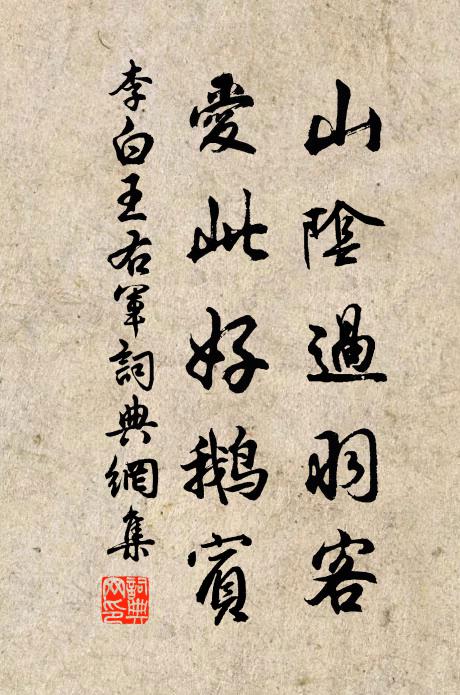 山陰過羽客
愛此好鵝賓
李白王右軍詞典網集
詞典网印